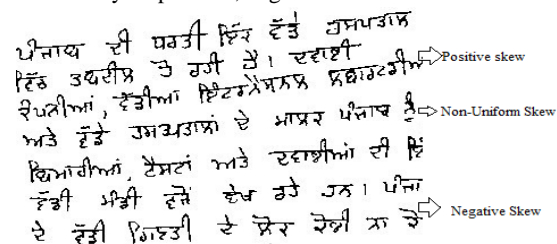 ਪੰਜਾਬ ਦੀ ਧਰਤੀ ਇੱਕ ਵੱਡੇ ਹਸਪਤਾਲ
ਵਿੱਚ ਤਬਦੀਲ ਹੋ ਰਹੀ ਹੈ। ਦਵਾਈ
Positive skew
ਕੰਪਨੀਆਂ, ਵੱਡੀਆਂ ਇੰਟਰਨੈਸ਼ਨਲ ਲਬਾਰਟਰੀਆਂ
ਅਤੇ ਵੱਡੇ ਹਸਪਤਾਲਾਂ ਦੇ ਮਾਲਕ ਪੰਜਾਬ ਨੂੰ
Non-Uniform Skew
ਬਿਮਾਰੀਆਂ, ਟੈਸਟਾਂ ਅਤੇ ਦਵਾਈਆਂ ਦੀ ਇੱ
ਵੱਡੀ ਮੰਡੀ ਵਜੋਂ ਵੇਖ ਰਹੇ ਹਨ। ਪੰਜਾ
ਦੇ ਵੱਡੀ ਗਿਣਤੀ ਦੇ ਲੋਕ ਰੋਜ਼ੀ
Negative Skew